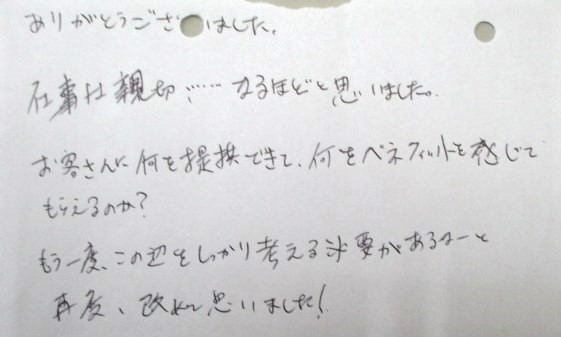 ありがとうございました。
仕事は親切……なるほどと思いました。
お客さんに何を提携できて、何をベネフィットを感じて
もらえるのか?
もう一度、この辺をしっかり考える必要があるなーと
再度、改めて思いました!